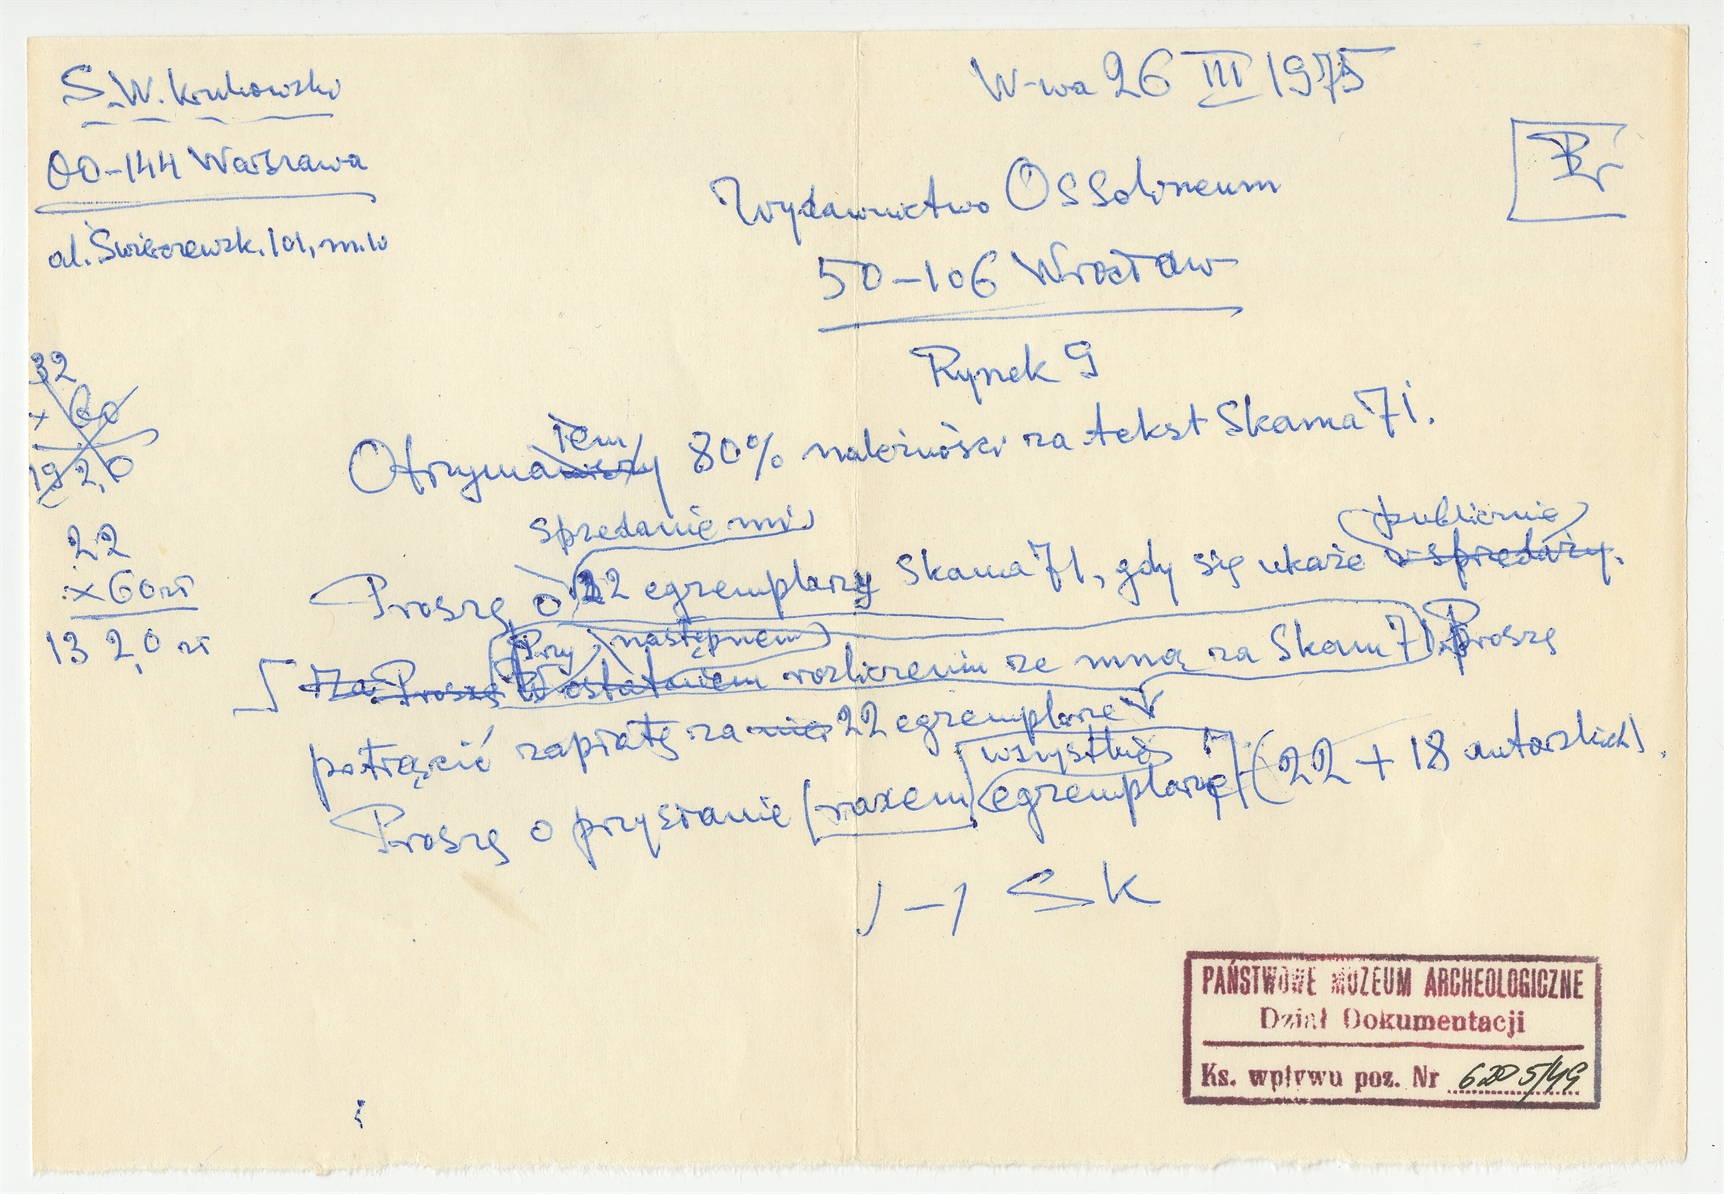 S. W. Krukowski
W-wa 26 III 1975
00-144 Warszawa
al. Świerczewsk. 101, m. 10
Br
Wydawnictwo Ossolineum
50-106 Wrocław
Rynek 9
32
× 60
192,0
22
× 60 zł
132,0 zł
łem
Otrzyma 80% należności za tekst Skama 71.
sprzedanie mi
publicznie
Proszę o 22 egzemplarzy Skama 71, gdy się ukaże w sprzedaży.
Przy następnem
Za Proszę W ostatniem rozliczeniu ze mną za Skam 71 Proszę
potrącić zapłatę za nie 22 egzemplarze
wszystkie
Proszę o przysłanie (razem) egzemplarzy (22 + 18 autorskich).
/-/ SK
PAŃSTWOWE MUZEUM ARCHEOLOGICZNE
Dział Dokumentacji
Ks. wpływu poz. Nr 6205/49